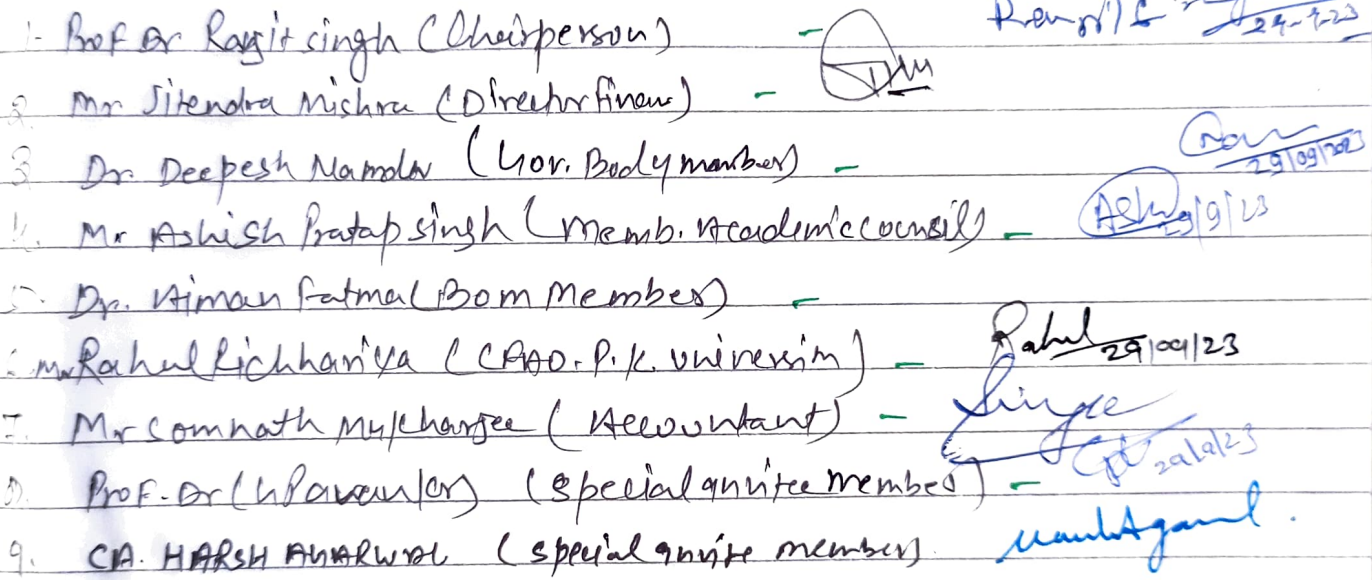 1- Prof Dr Ranjit singh (Chairperson) - 29-9-23
2. Mr Jitendra Mishra (Director finance) -
3. Dr. Deepesh Namdev (Gov. Body member) - 29/09/2023
4. Mr Ashish Pratap singh (Memb. Academic Counsil) - 29/9/23
5. Dr. Aiman Fatma (Bom Member) -
Mr Rahul Richhariya (CFAO. P.K. University) - Rahul 29/09/23
7. Mr Somnath Mukharjee (Accountant) -
Prof. Dr (special invitee member) - 29/9/23
9. CA. HARSH AGARWAL (special invite member)